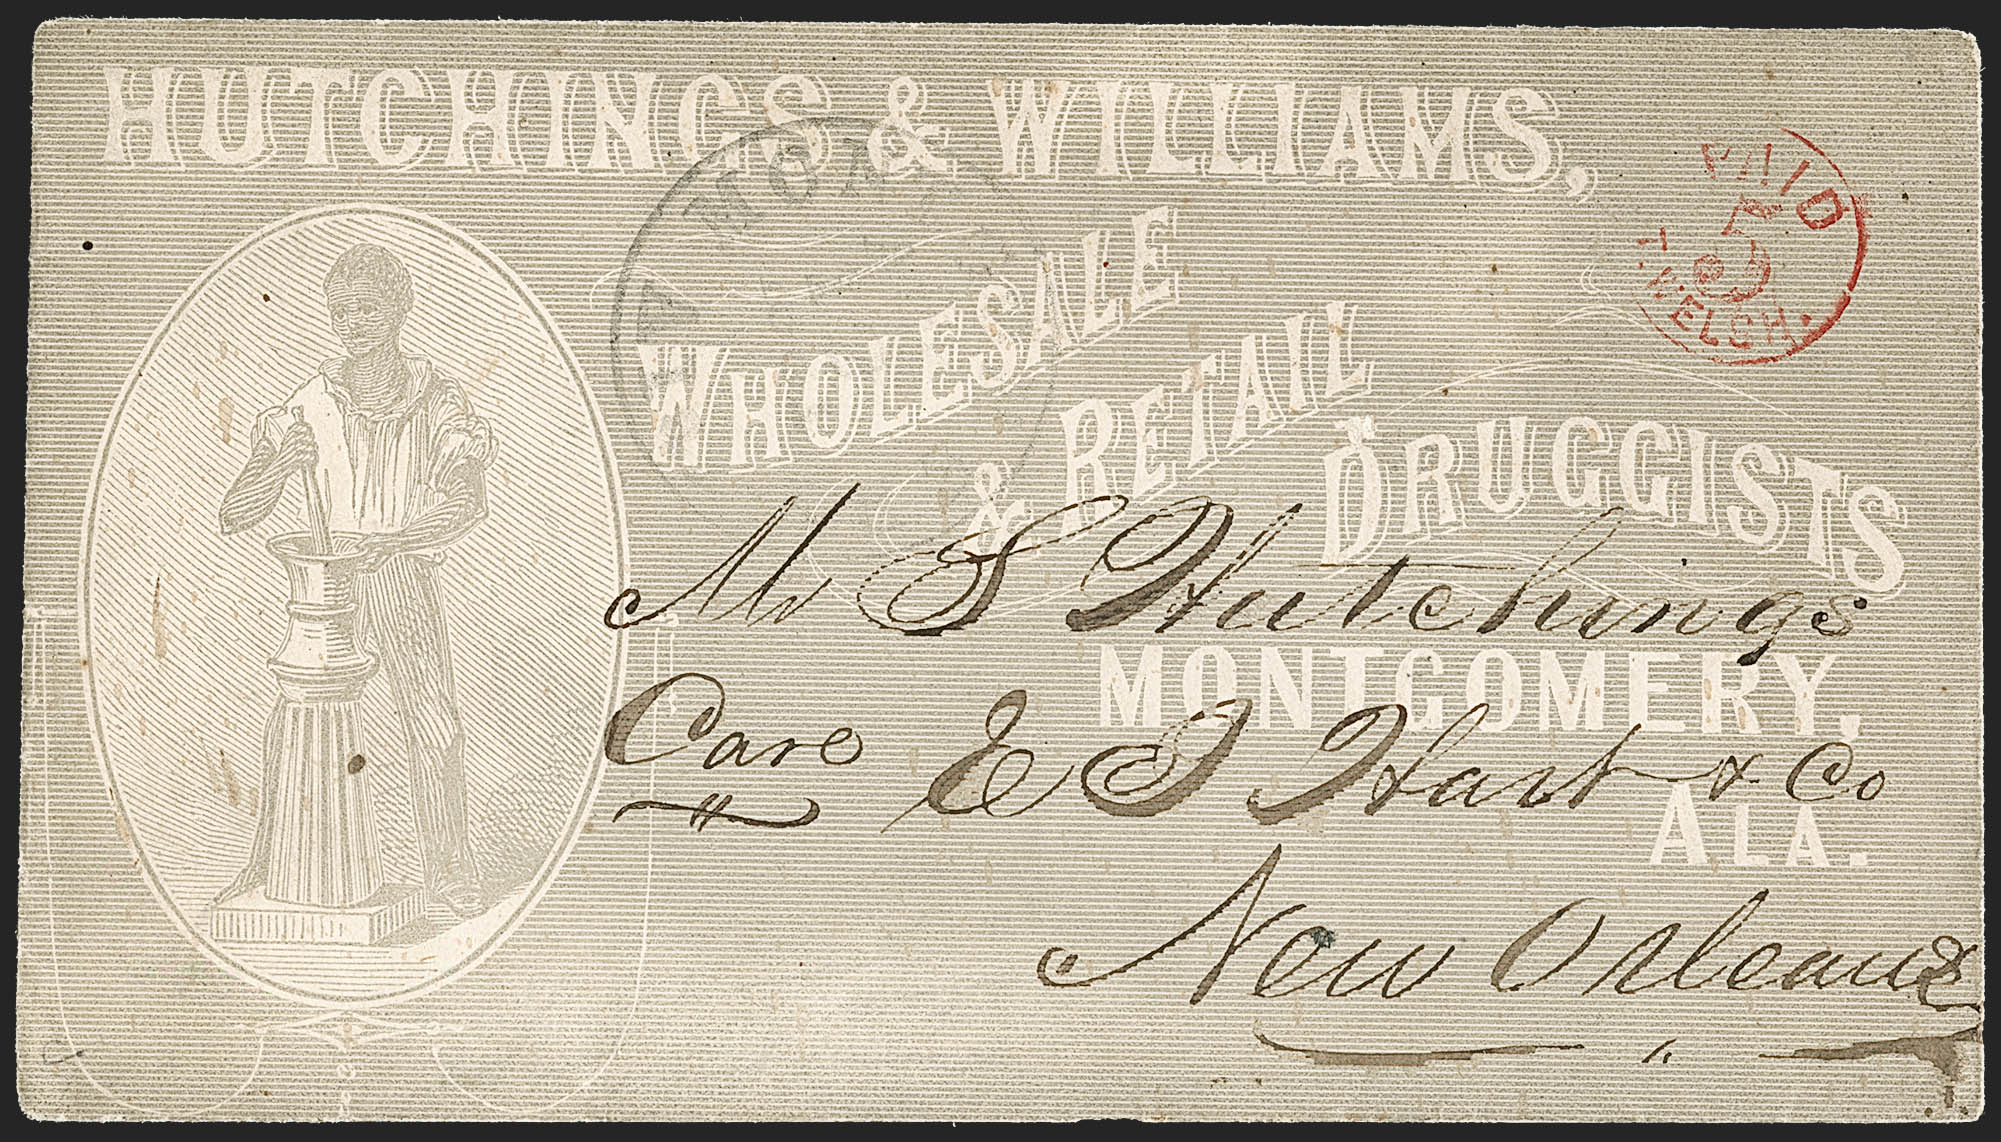 HUTCHINGS & WILLIAMS,
PAID
5
T. WELSH.
WHOLESALE
& RETAIL
DRUGGISTS
Mr S Hutchings
MONTGOMERY,
Care E J Hart & Co
ALA.
New Orleans